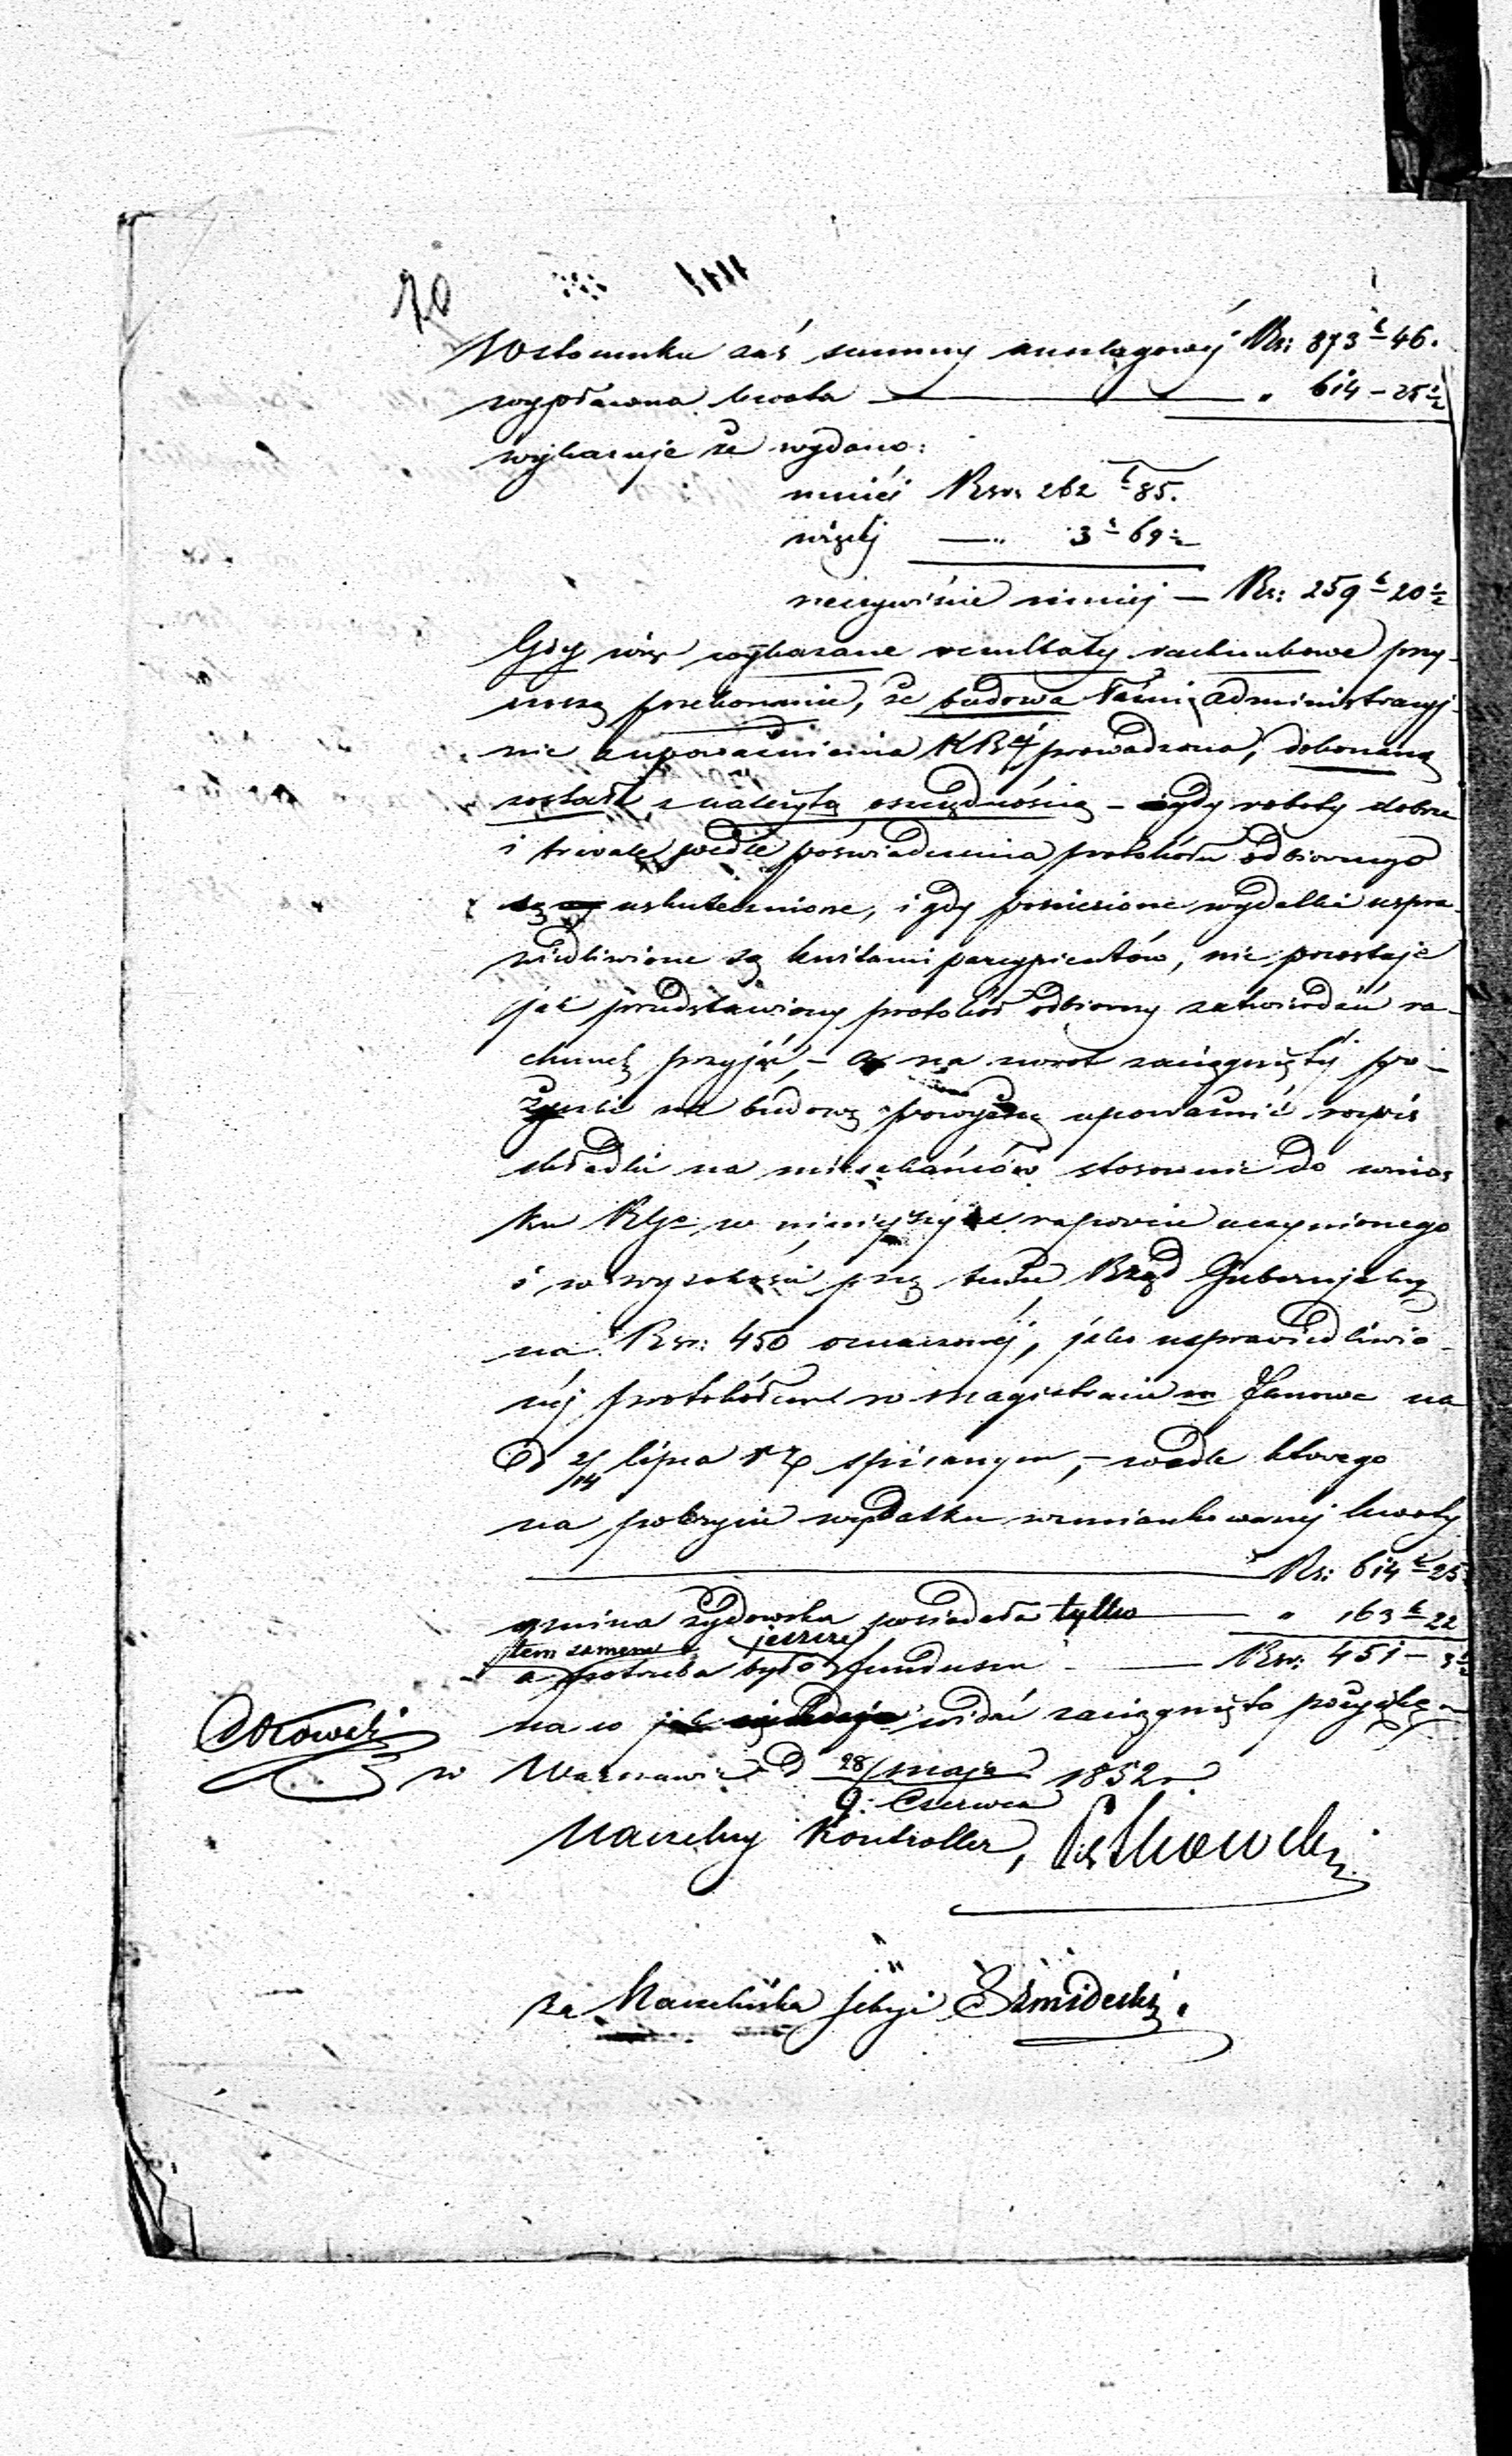 70
W stosunku zaś summy anszlagowéj Rs: 873 k 46.
wypłacona kwota — „ 614 – 25 ½
wykazuje że wydano:
mniéj Rsr: 262 k 85.
więcéj — „ 3 k 69 ½
rzeczywiście mniej — Rs: 259 k 20 ½
Gdy więc wykazane rezultaty rachunkowe przy-
noszą przekonanie, że budowa Łaźni administracyj-
nie z upoważnienia prowadzona, dokonaną
została z należytą oszczędnością – gdy roboty dobrze
i trwale podle poświadczenia protokółu odbiorczego
są uskutecznione, i gdy poniesione wydatki uspra-
wiedliwione są kwitami percypientów, nie pozostaje
jak przedstawiony protokół odbiorczy zatwierdzić ra-
chunek przyjąć, – a na zwrot zaciągniętéj po-
życzki na budowę powyższą upoważnić rozpis
składki na mieszkańców stosownie do wnios
ku w niniejszym raporcie uczynionego
i w wysokości przez tenże Rząd Gubernjalny
na Rsr: 450 oznaczonéj, jako usprawiedliwio-
néj protokółem w Magistracie m Janowa na
d 2/14 lipca spisanym, – wedle którego
na pokrycie wydatku wzmiankowanéj kwoty
— Rs: 614 k 25
gmina żydowska posiadała tylko — „ 163 k 22
tem samem jeszcze
a potrzeba było funduszu — Rsr: 451 – 3 ½
na co widać zaciągnięto pożyczkę
w Warszawie d 28/ maja 1852 r.
9: Czerwca
Naczelny Kontroller,
za Naczelnika Sekcji Szmidecki.